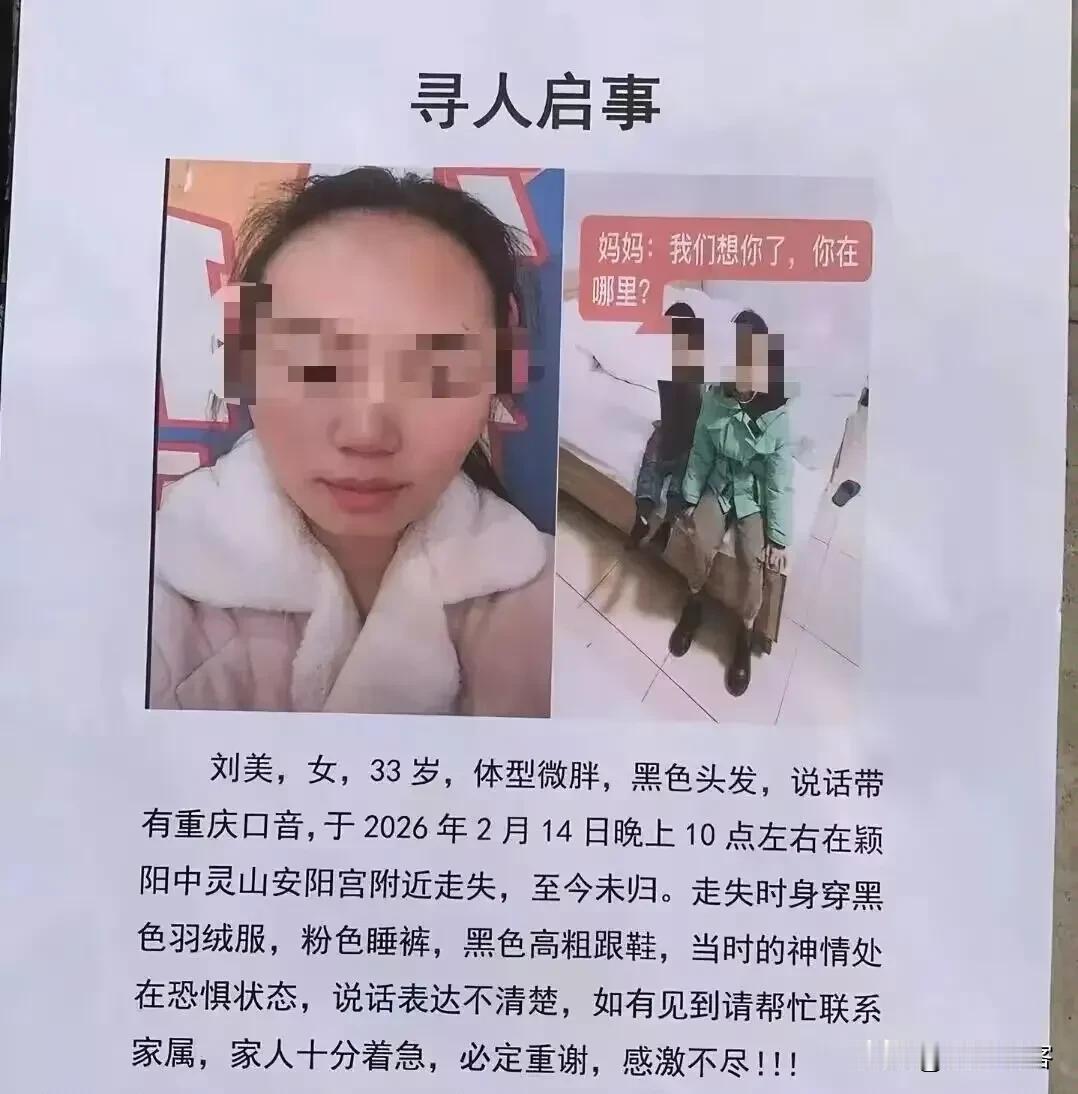 寻人启事
妈妈：我们想你了，你在
哪里？
刘美，女，33岁，体型微胖，黑色头发，说话带
有重庆口音，于2026年2月14日晚上10点左右在颖
阳中灵山安阳宫附近走失，至今未归。走失时身穿黑
色羽绒服，粉色睡裤，黑色高粗跟鞋，当时的神情处
在恐惧状态，说话表达不清楚，如有见到请帮忙联系
家属，家人十分着急，必定重谢，感激不尽!!!
客